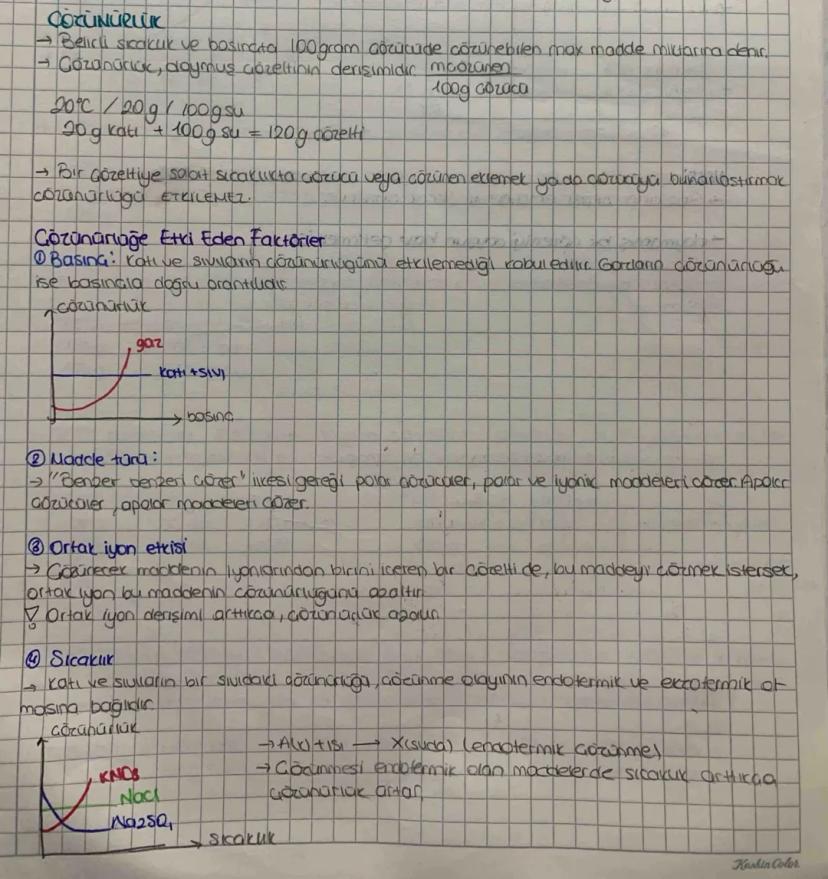 ÇÖZÜNÜRLÜK
→ Belirli sıcaklık ve basınçta 100gram çözücüde çözünebilen max madde miktarına denir.
→ Çözünürlük, doymuş çözeltinin derişimidir mçözünen
100g çözücü
20°C / 20g / 100gsu
20g katı + 100g su = 120g çözelti
→ Bir çözeltiye sabit sıcaklıkta çözücü veya çözünen eklemek ya da çözücüyü buharlaştırmak
çözünürlüğü ETKİLEMEZ.
Çözünürlüğe Etki Eden Faktörler
① Basınç: Katı ve sıvıların çözünürlüğünü etkilemediği kabul edilir. Gazların çözünürlüğü
ise basınçla doğru orantılıdır.
çözünürlük
gaz
katı + sıvı
basınç
② Madde türü:
→ "Benzer benzeri çözer" ilkesi gereği polar çözücüler, polar ve iyonik maddeleri çözer. Apolar
çözücüler, apolar maddeleri çözer.
③ Ortak iyon etkisi
→ Çözünecek maddenin iyonlarından birini içeren bir çözeltide, bu maddeyi çözmek istersek,
ortak iyon bu maddenin çözünürlüğünü azaltır.
! Ortak iyon derişimi arttıkça, çözünürlük azalır.
④ Sıcaklık
→ Katı ve sıvıların bir sıvıdaki çözünürlüğü, çözünme olayının endotermik ve ekzotermik ol-
masına bağlıdır.
çözünürlük
→ A(k) + ısı → X(suda) (endotermik çözünme)
KNO3
→ Çözünmesi endotermik olan maddelerde sıcaklık arttıkça
NaCl
çözünürlük artar.
Na2SO4
sıcaklık
KeskinColor